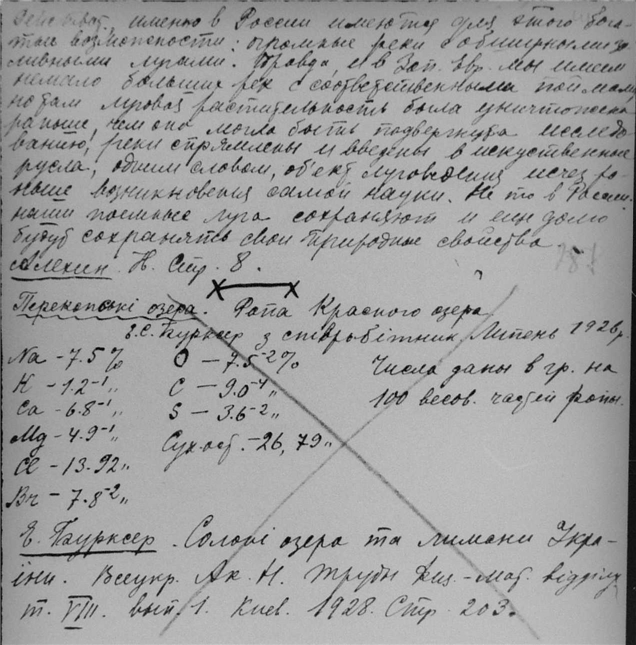 именно в России имеются для этого бога-
тые возможности: огромные реки с обширными за-
ливными лугами. Правда, и в Зап. Евр. мы имеем
немало больших рек с соответственными поймами
но там луговая растительность была уничтожена
раньше, чем она могла быть подвергнута исследо-
ванию; реки спрямлены и введены в искусственные
русла; одним словом, объект луговедения исчез ра-
ньше возникновения самой науки. Не то в России.
наши поемные луга сохраняют и еще долго
будут сохранять свои природные свойства
Алехин. Н. Стр. 8.
Перекопські озера. Ропа Красного озера
Е.С. Бурксер з співробітник. Липень 1926 р.
Na – 7.5% O – 7.5⁻²% Числа даны в гр. на
K – 1.2⁻¹ „ C – 9.0⁻⁴ „ 100 весов. частей рапы.
Ca – 6.8⁻¹ „ S – 3.6⁻² „
Mg – 4.9⁻¹ „ Сух. ост. – 26,79 „
Cl – 13.92 „
Br – 7.8⁻² „
Е. Бурксер. Солоні озера та лимани Укра-
їни. Всеукр. Ак. Н. Труды Физ.-мат. відділу
т. VIII. вып. 1. Киев. 1928. Стр. 203.